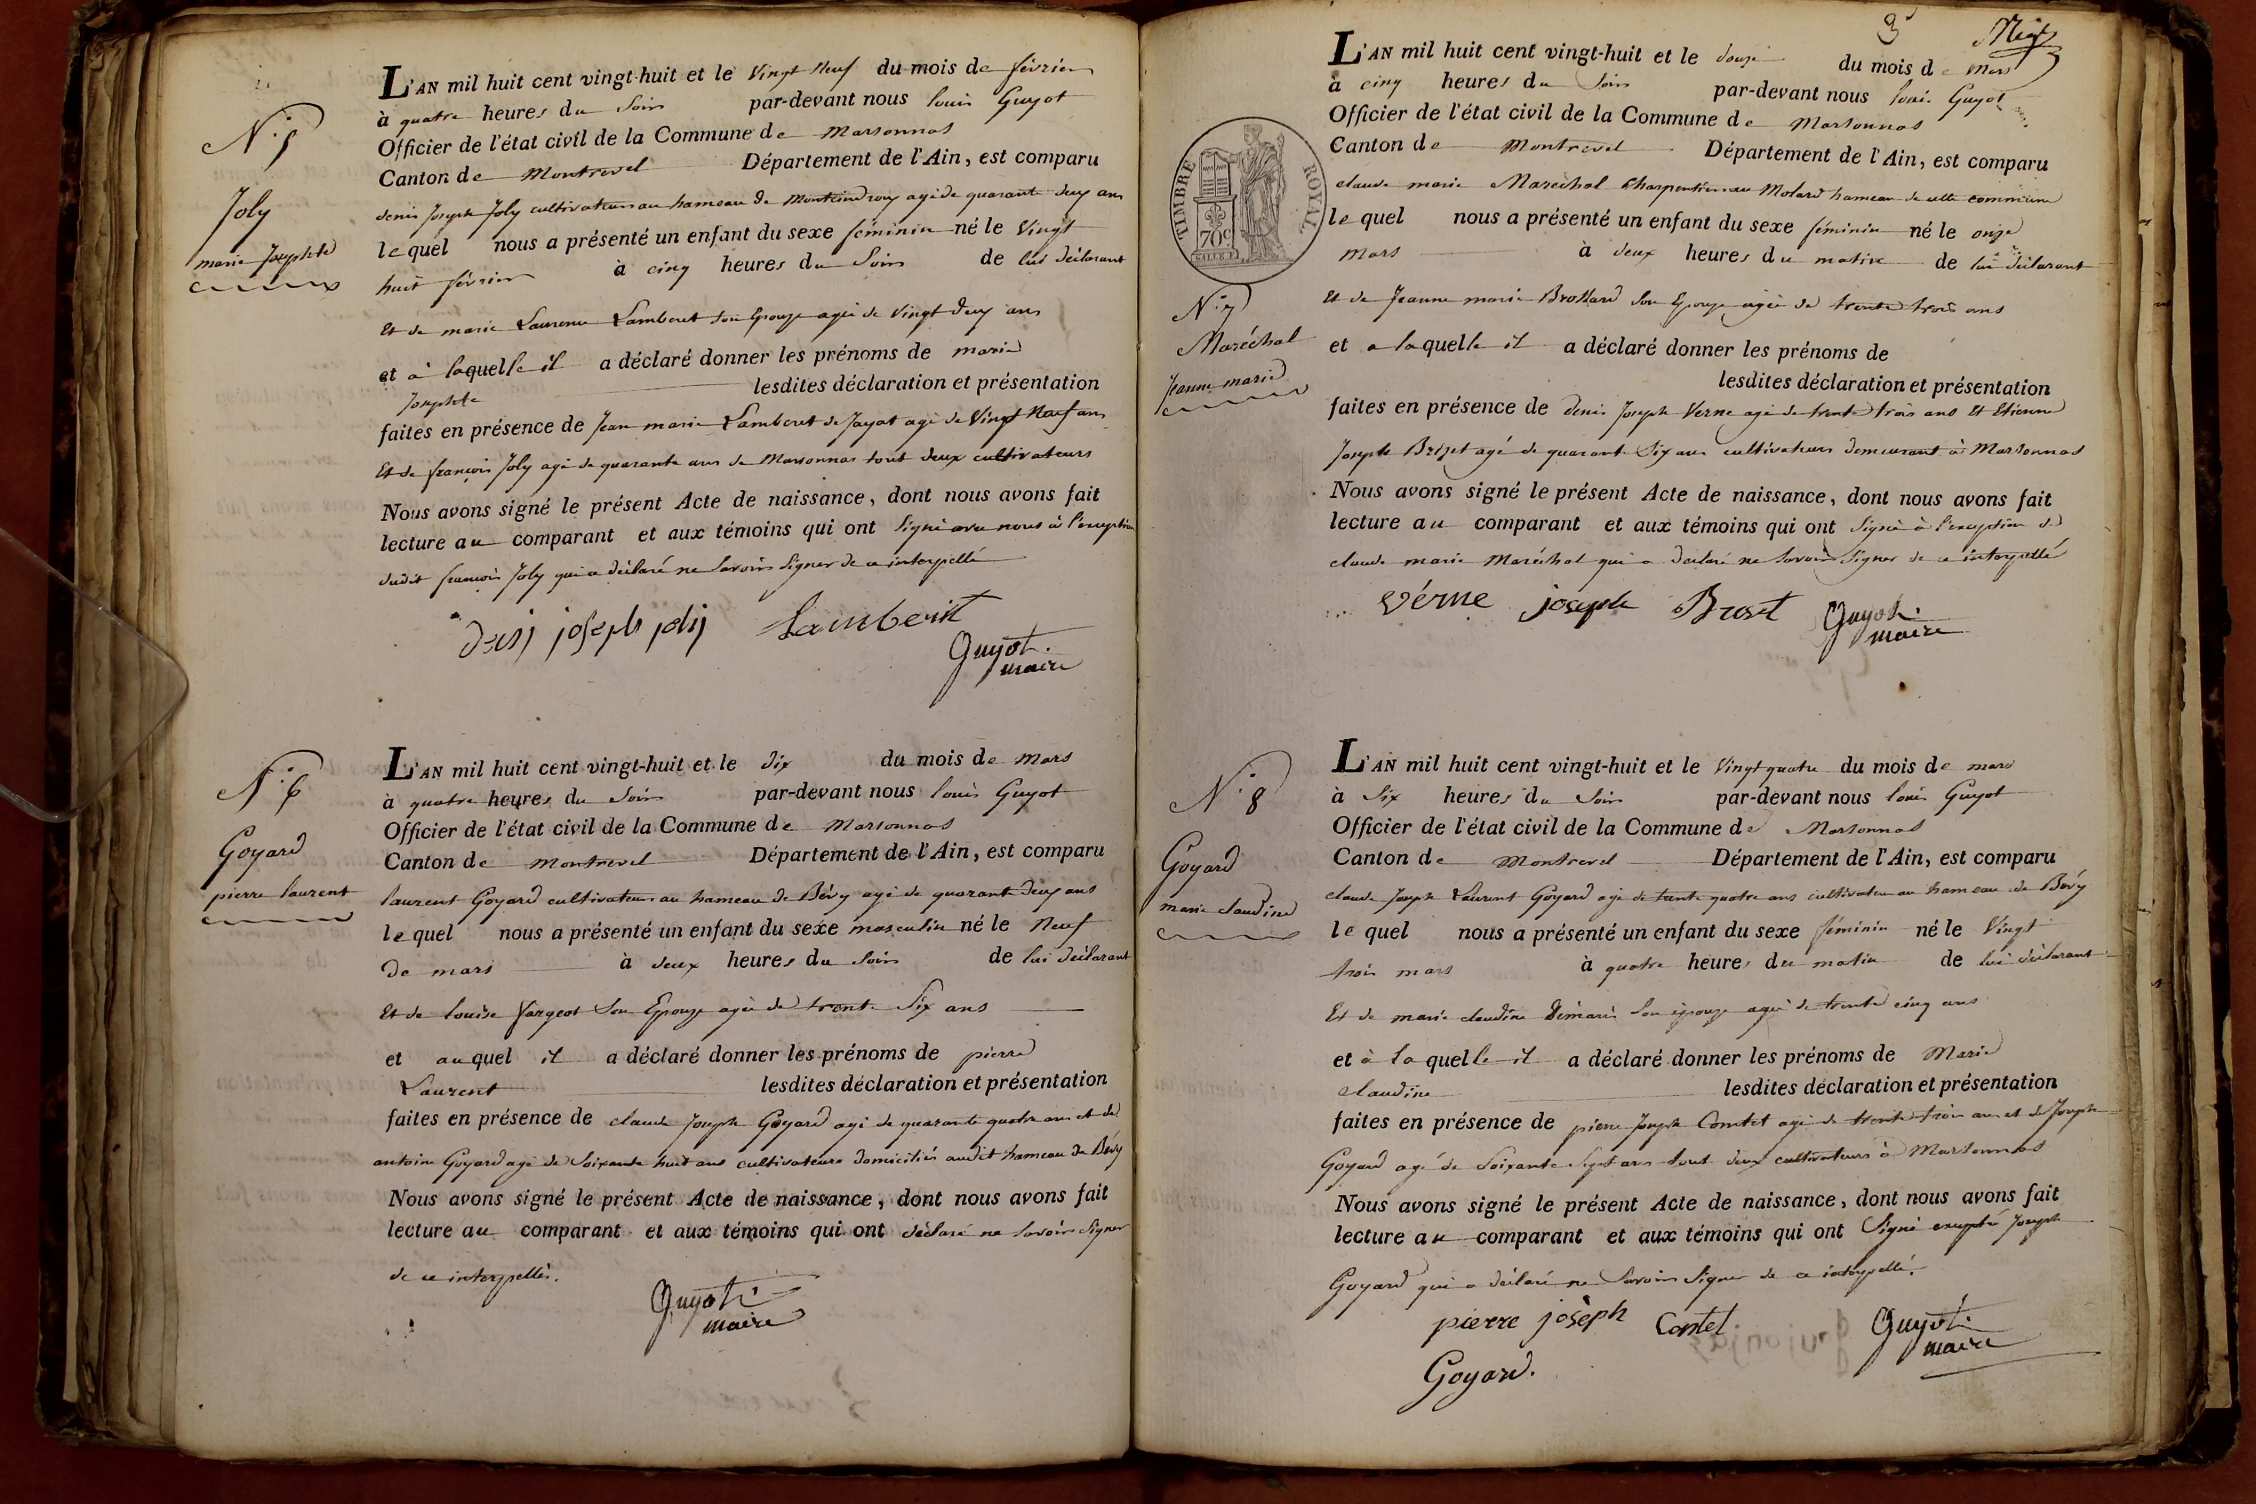 N.º 5
Joly
marie Josephte
L'AN mil huit cent vingt-huit et le Vingt Neuf du mois de février
à quatre heures du Soir par-devant nous louis Guyot
Officier de l'état civil de la Commune de Marsonnas
Canton de Montrevel Département de l'Ain, est comparu
denis Joseph Joly cultivateur au hameau de agé de quarante deux ans
lequel nous a présenté un enfant du sexe féminin né le Vingt
huit février à cinq heures du Soir de lui déclarant
Et de marie Laurence Lamberet son Epouse agée de Vingt deux ans
et à laquelle il a déclaré donner les prénoms de marie
Josephte lesdites déclaration et présentation
faites en présence de Jean marie Lamberet de Jayat agé de Vingt Neuf ans
Et de françois Joly agé de quarante ans de Marsonnas tout deux cultivateurs
Nous avons signé le présent Acte de naissance, dont nous avons fait
lecture au comparant et aux témoins qui ont Signé avec nous à l'exception
dudit françois Joly qui a déclaré ne Savoir Signer de ce interpellé
denis joseph jolij Lamberet
Guyot
maire
N.º 6
Goyard
pierre laurent
L'AN mil huit cent vingt-huit et le dix du mois de Mars
à quatre heures du Soir par-devant nous louis Guyot
Officier de l'état civil de la Commune de Marsonnas
Canton de Montrevel Département de l'Ain, est comparu
laurent Goyard cultivateur au hameau de Bévy agé de quarante deux ans
lequel nous a présenté un enfant du sexe masculin né le Neuf
De mars à deux heures du Soir de lui déclarant
Et de louise fargeot Son Epouse agée de trente Six ans
et auquel il a déclaré donner les prénoms de pierre
Laurent lesdites déclaration et présentation
faites en présence de claude Joseph Goyard agé de quarante quatre ans et de
antoine Goyard agé de Soixante huit ans cultivateurs domiciliés audit hameau de Bévy
Nous avons signé le présent Acte de naissance, dont nous avons fait
lecture au comparant et aux témoins qui ont déclaré ne Savoir Signer
de ce interpellés.
Guyot
maire
3
L'AN mil huit cent vingt-huit et le douze du mois de Mars
à cinq heures du Soir par-devant nous louis Guyot
Officier de l'état civil de la Commune de Marsonnas
Canton de Montrevel Département de l'Ain, est comparu
claude marie Maréchal Charpentier au Molard hameau de cette commune
lequel nous a présenté un enfant du sexe féminin né le onze
Mars à deux heures du matin de lui déclarant
Et de Jeanne marie Son Epouse agée de trente trois ans
et a laquelle il a déclaré donner les prénoms de
lesdites déclaration et présentation
faites en présence de denis Joseph Verne agé de trente trois ans Et Etienne
Joseph agé de quarante Six ans cultivateurs demeurant à Marsonnas
Nous avons signé le présent Acte de naissance, dont nous avons fait
lecture au comparant et aux témoins qui ont Signé à l'exception de
claude marie Maréchal qui a déclaré ne Savoir Signer de ce interpellé
verne joseph Guyot
maire
TIMBRE ROYAL
70c
N.º 7
Maréchal
Jeanne marie
N.º 8
Goyard
marie claudine
L'AN mil huit cent vingt-huit et le Vingt quatre du mois de mars
à Six heures du Soir par-devant nous louis Guyot
Officier de l'état civil de la Commune de Marsonnas
Canton de Montrevel Département de l'Ain, est comparu
claude Joseph Laurent Goyard agé de trente quatre ans cultivateur au hameau de Bévy
lequel nous a présenté un enfant du sexe féminin né le Vingt
trois mars à quatre heures du matin de lui déclarant
Et de marie claudine Son épouse agée de trente cinq ans
et à laquelle il a déclaré donner les prénoms de Marie
claudine lesdites déclaration et présentation
faites en présence de pierre Joseph Comtet agé de trente trois ans et de Joseph
Goyard agé de Soixante Sept ans tout deux cultivateurs à Marsonnas
Nous avons signé le présent Acte de naissance, dont nous avons fait
lecture au comparant et aux témoins qui ont Signé excepté Joseph
Goyard qui a déclaré ne Savoir Signer de ce interpellé.
pierre josèph Contet Guyot
maire
Goyard.